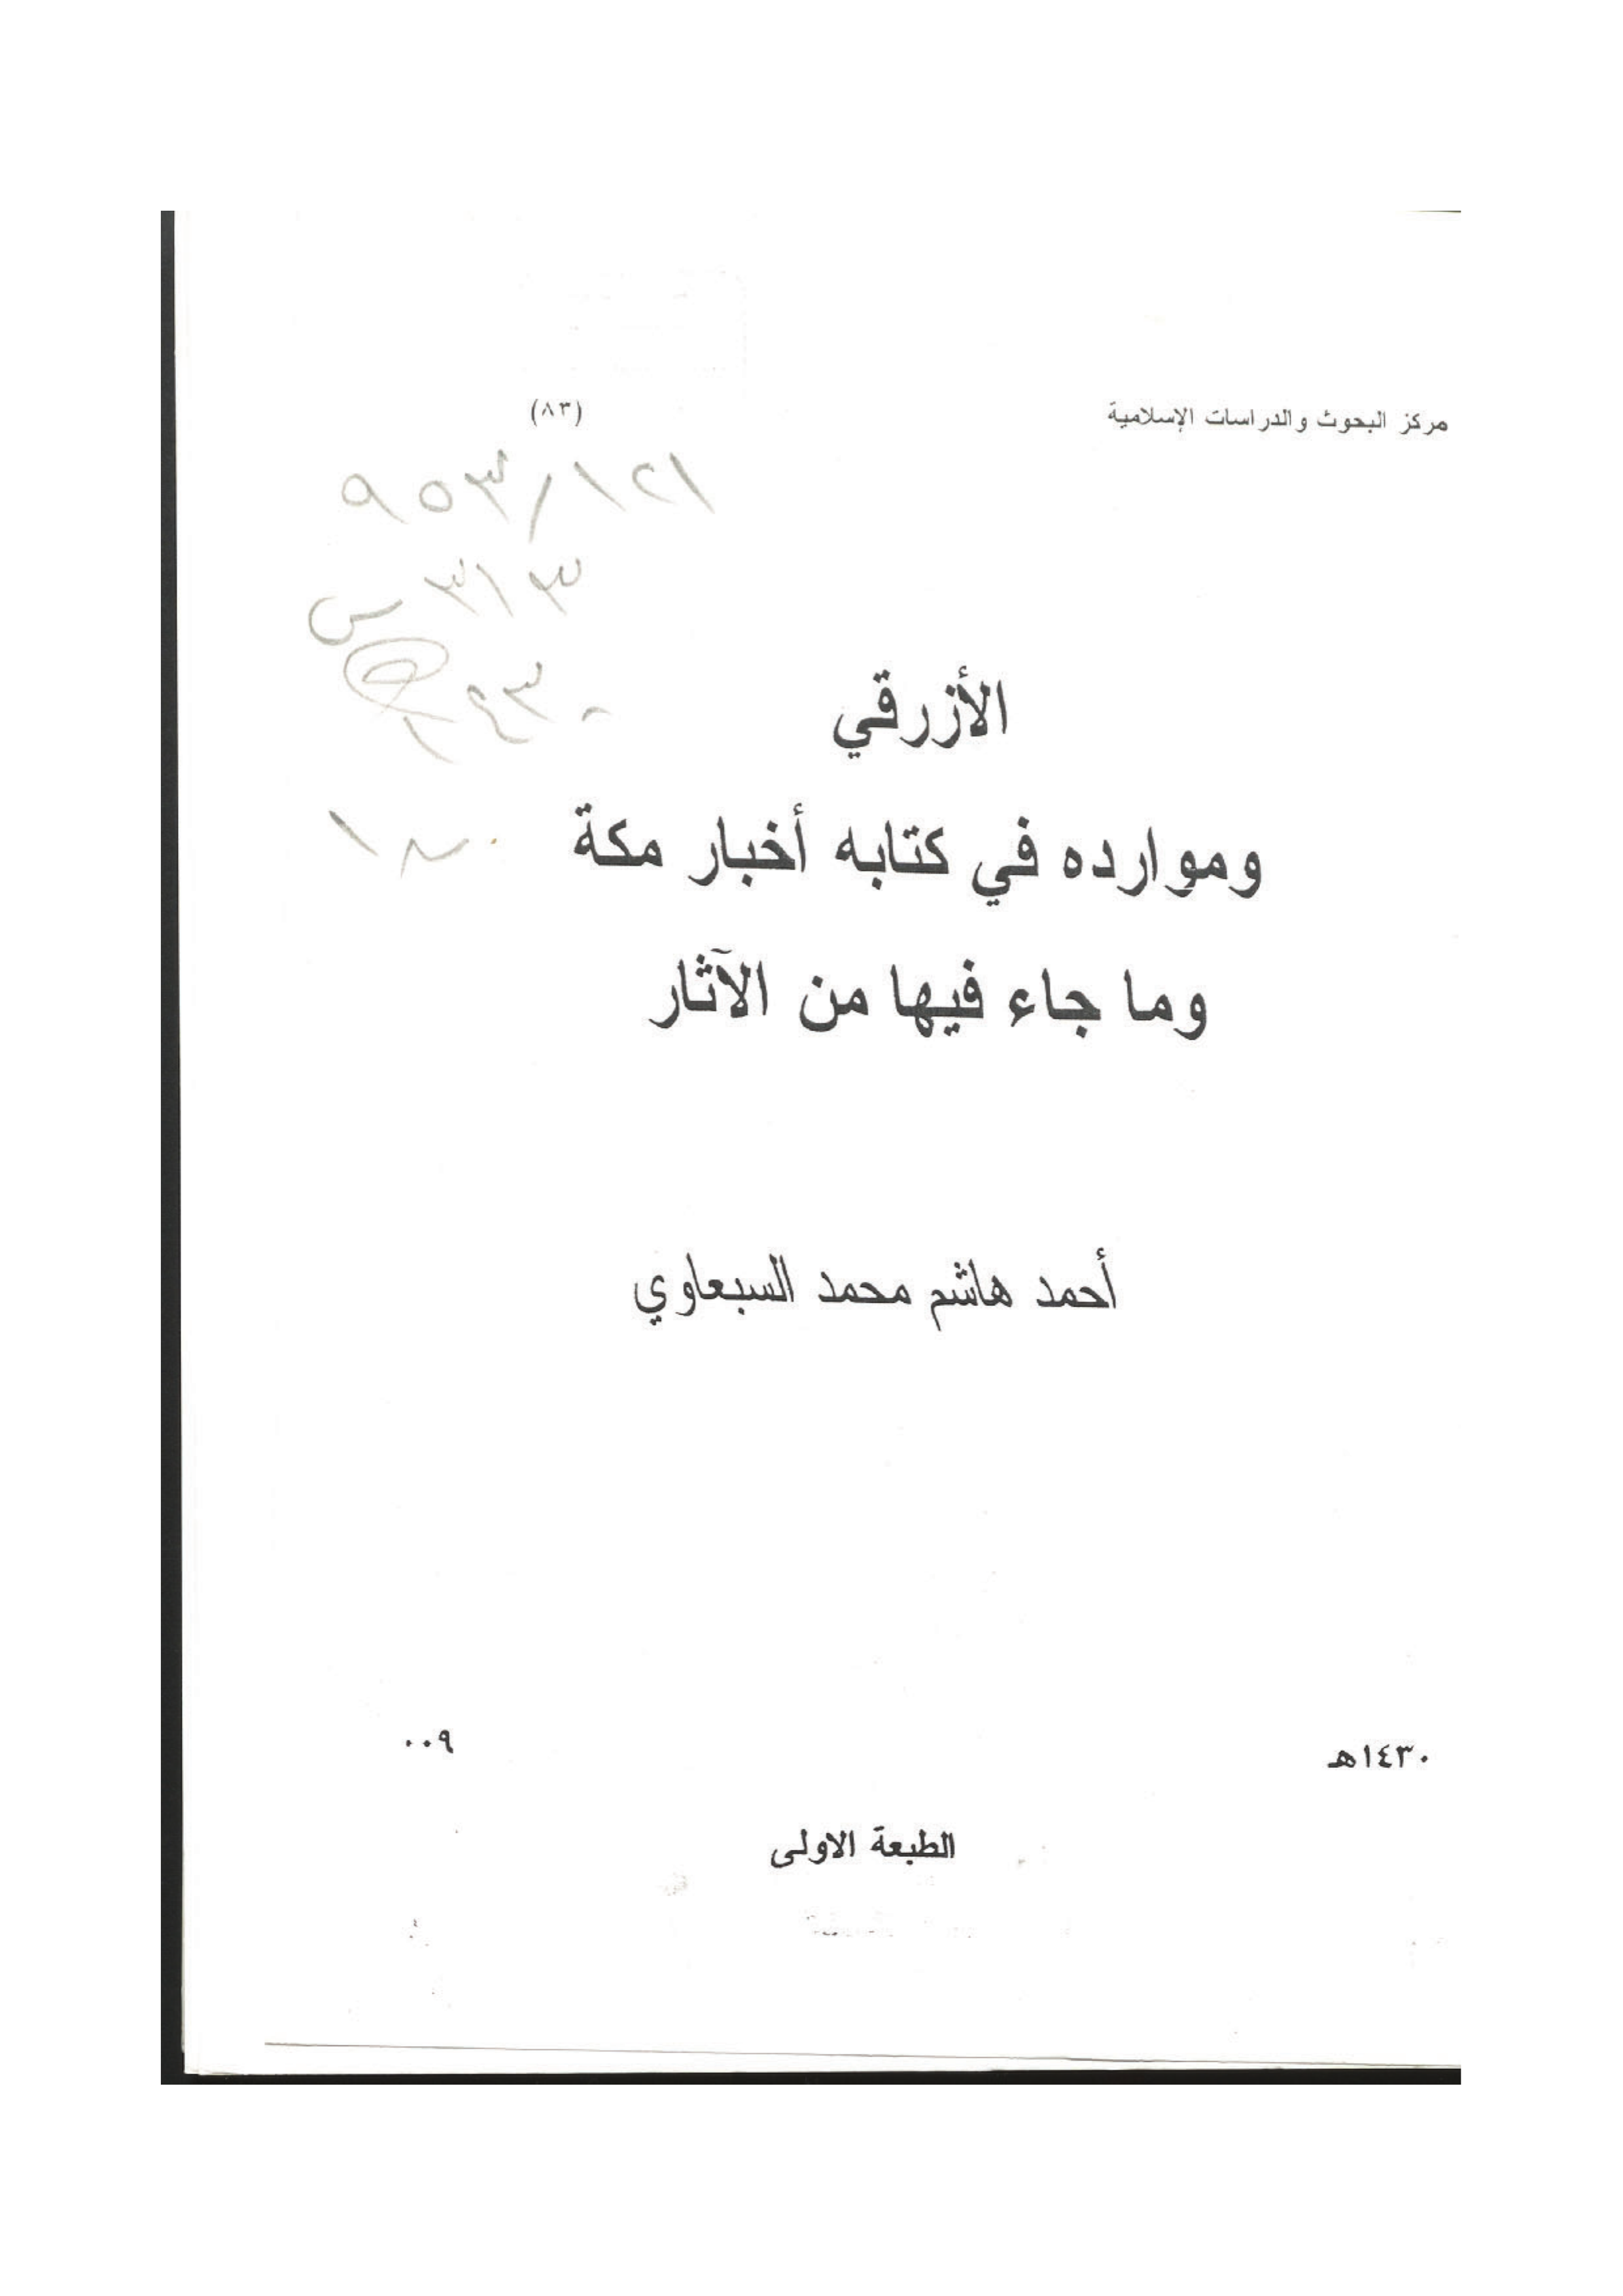 مركز البحوث والدراسات الإسلامية (٨٣)
٩٥٣/١٢١
٣١٣ س
الأزرقي
وموارده في كتابه أخبار مكة
وما جاء فيها من الآثار
أحمد هاشم محمد السبعاوي
١٤٣٠هـ ٠٠٩
الطبعة الاولى